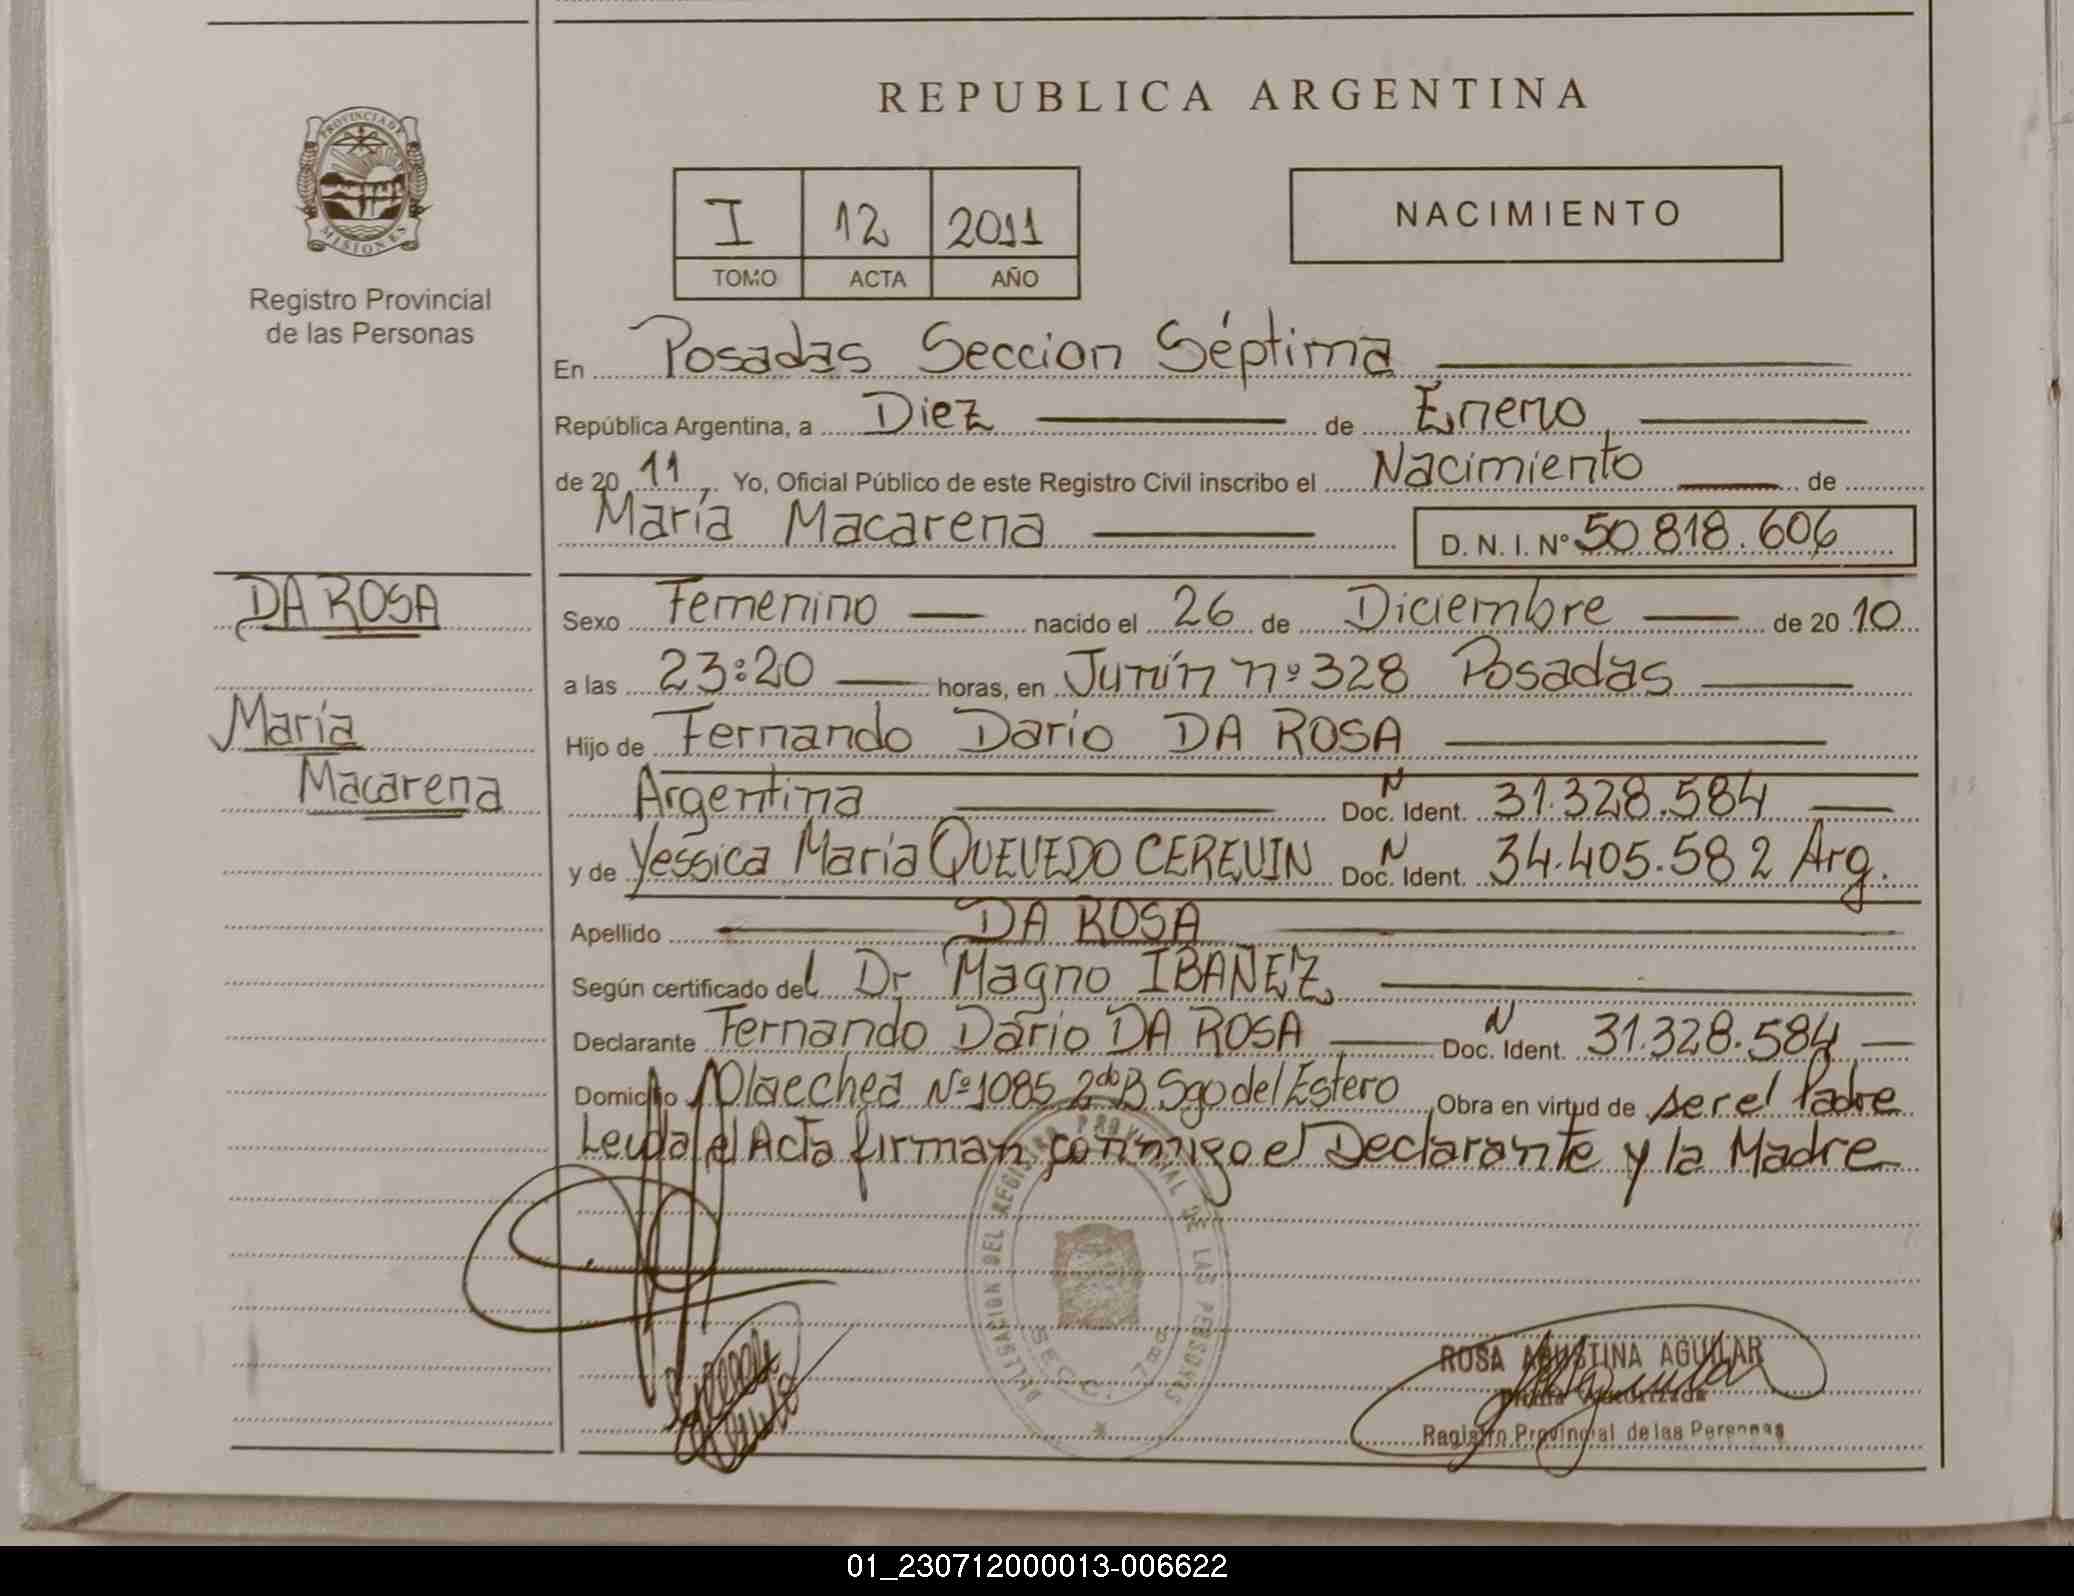 REPUBLICA ARGENTINA
PROVINCIA DE
MISIONES
Registro Provincial
de las Personas
I 12 2011
TOMO ACTA AÑO
NACIMIENTO
En Posadas Seccion Séptima
República Argentina, a Diez de Enero
de 20 11, Yo, Oficial Público de este Registro Civil inscribo el Nacimiento de
María Macarena D. N. I. Nº 50 818.606
DA ROSA
María
Macarena
Sexo Femenino nacido el 26 de Diciembre de 20 10
a las 23:20 horas, en Junín nº 328 Posadas
Hijo de Fernando Dario DA ROSA
Argentina Doc. N Ident. 31.328.584
y de Yessica María QUEVEDO CEREVIN Doc. N Ident. 34.405.582 Arg.
Apellido DA ROSA
Según certificado del Dr Magno IBAÑEZ
Declarante Fernando Dario DA ROSA Doc. N Ident. 31.328.584
Domicilio Olaechea Nº 1085 2do B Sgo del Estero Obra en virtud de ser el Padre
Leida el Acta firman conmigo el Declarante y la Madre
DELEGACION DEL REGISTRO PROVINCIAL DE LAS PERSONAS
SECC. 7ma
ROSA AGUSTINA AGUILAR
Firma Autorizada
Registro Provincial de las Personas
01_230712000013-006622